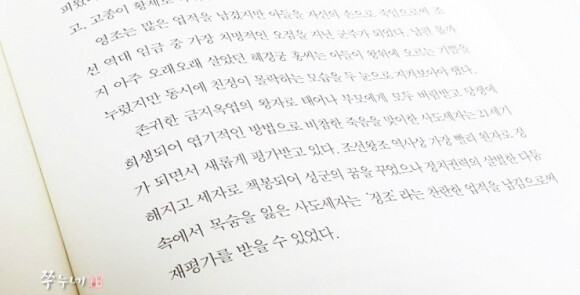 고, 고종이 황제로
영조는 많은 업적을 남겼지만 아들을 자신의 손으로 죽임으로써 조
선 역대 임금 중 가장 치명적인 오점을 지닌 군주가 되었다. 남편
지 아주 오래오래 살았던 혜경궁 홍씨는 아들이 왕위에 오르는 기쁨을
누렸지만 동시에 친정이 몰락하는 모습을 두 눈으로 지켜보아야 했다.
존귀한 금지옥엽의 왕자로 태어나 부모에게 모두 버림받고 당쟁에
희생되어 엽기적인 방법으로 비참한 죽음을 맞이한 사도세자는 21세기
가 되면서 새롭게 평가받고 있다. 조선왕조 역사상 가장 빨리 원자로 정
해지고 세자로 책봉되어 성군의 꿈을 꾸었으나 정치권력의 살벌한 다툼
속에서 목숨을 잃은 사도세자는 '정조'라는 찬란한 업적을 남김으로써
재평가를 받을 수 있었다.
쭈누네